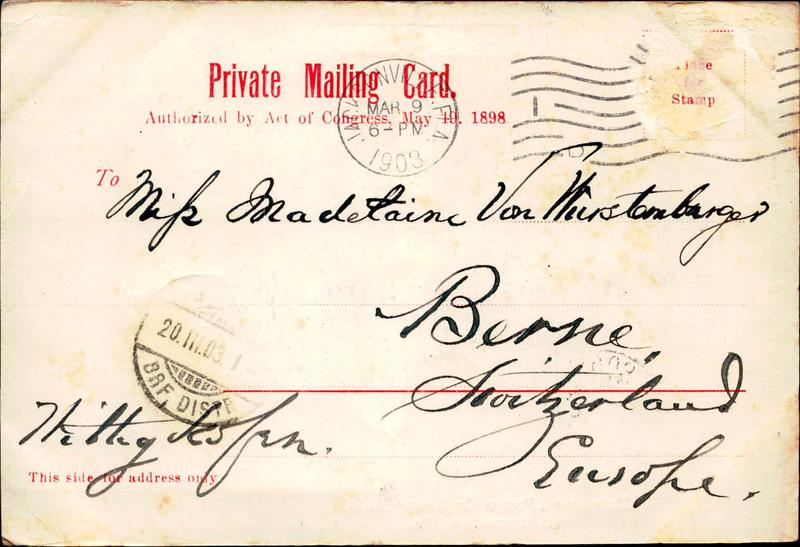 Private Mailing Card.
Authorized by Act of Congress, May 19, 1898
JACKSONVILLE, FLA.
MAR 9
6 - PM
1903
Place
for
Stamp
To
Miss Madelaine Von Wurstemberger
Berne,
Switzerland
Europe.
20.III.03.
BRF. DISTR
This side for address only